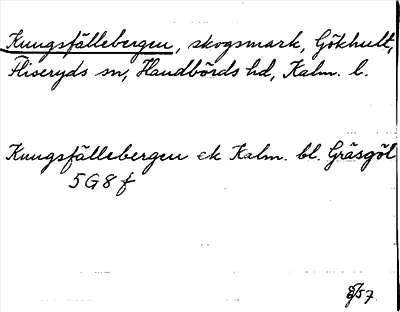 Kungsfällebergen, skogsmark, Gökhult,
Fliseryds sn, Handbörds hd, Kalm. l.
Kungsfällebergen ek Kalm. bl. Gräsgöl
5G8f